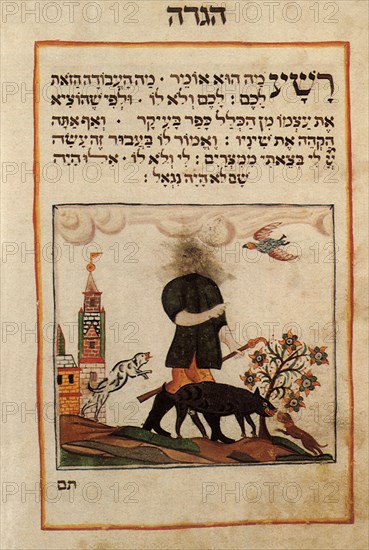 הגדה
רָשָׁע מַה הוּא אוֹמֵיר . מַה הָעֲבוֹדָה הַזֹּאת
לָכֶם : לָכֶם וְלֹא לוֹ . וּלְפִי שֶׁהוֹצִיא
אֶת עַצְמוֹ מִן הַכְּלָל כָּפַר בָּעִיקָר . וְאַף אַתָּה
הַקְהֵה אֶת שִׁינָיו : וֶאֱמוֹר לוֹ בַּעֲבוּר זֶה עָשָׂה
לִי בְּצֵאתִי מִמִּצְרָיִם : לִי וְלֹא לוֹ . אִלּוּ הָיָה
שָׁם לֹא הָיָה נִגְאָל :
תם
PHOTO 12